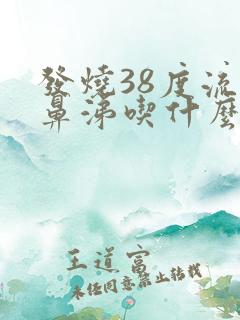 發燒38度流
鼻涕喫什麼
王道富
未經同意禁止轉載